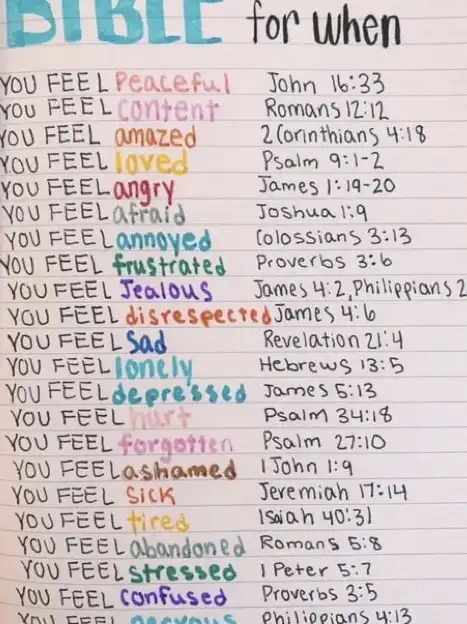 BIBLE for when
YOU FEEL Peaceful John 16:33
YOU FEEL content Romans 12:12
YOU FEEL amazed 2 Corinthians 4:18
YOU FEEL loved Psalm 9:1-2
YOU FEEL angry James 1:19-20
YOU FEEL afraid Joshua 1:9
YOU FEEL annoyed Colossians 3:13
YOU FEEL frustrated Proverbs 3:6
YOU FEEL Jealous James 4:2, Philippians 2
YOU FEEL disrespected James 4:6
YOU FEEL Sad Revelation 21:4
YOU FEEL lonely Hebrews 13:5
YOU FEEL depressed James 5:13
YOU FEEL hurt Psalm 34:18
YOU FEEL forgotten Psalm 27:10
YOU FEEL ashamed 1 John 1:9
YOU FEEL Sick Jeremiah 17:14
YOU FEEL tired Isaiah 40:31
YOU FEEL abandoned Romans 5:8
YOU FEEL stressed 1 Peter 5:7
YOU FEEL confused Proverbs 3:5
YOU FEEL nervous Philippians 4:13